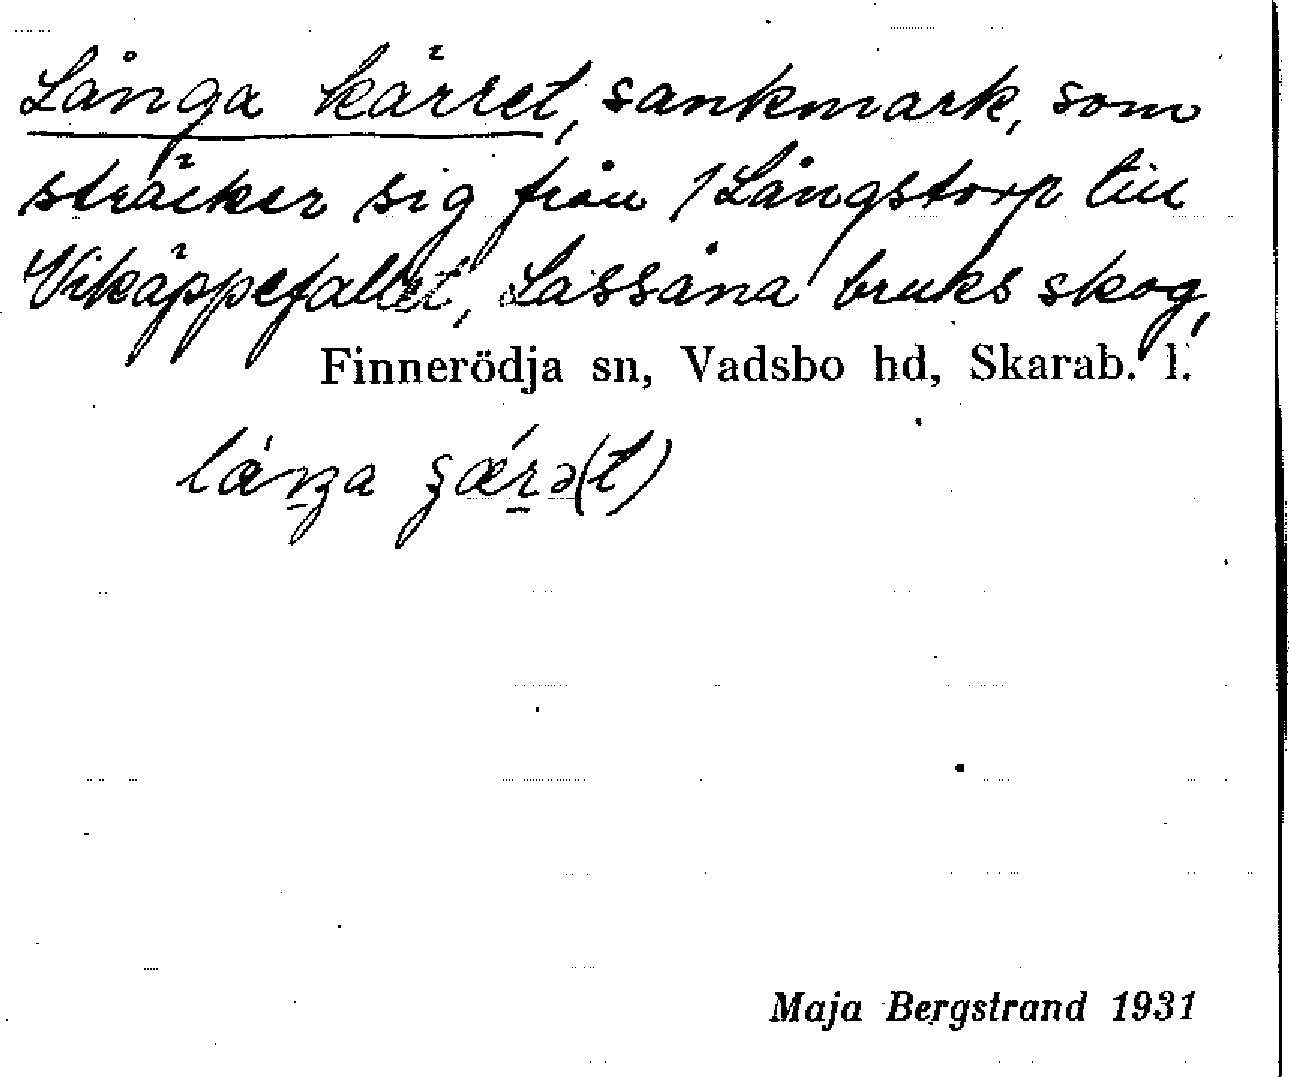 Långa kärret, sankmark, som
sträcker sig från 1 Långstorp till
Vikäppefallet, Lassåna bruks skog,
Finnerödja sn, Vadsbo hd, Skarab. l.
Maja Bergstrand 1931